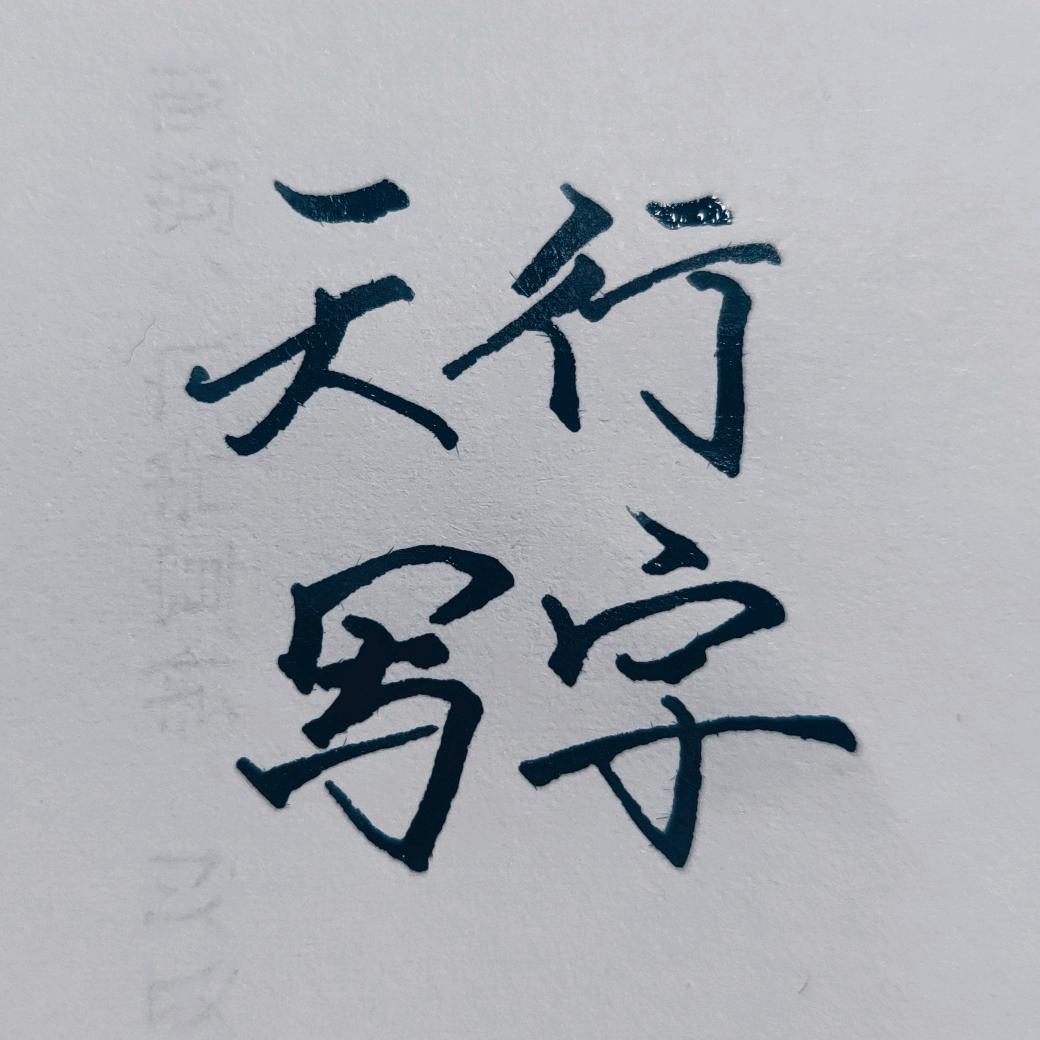 天行
写字